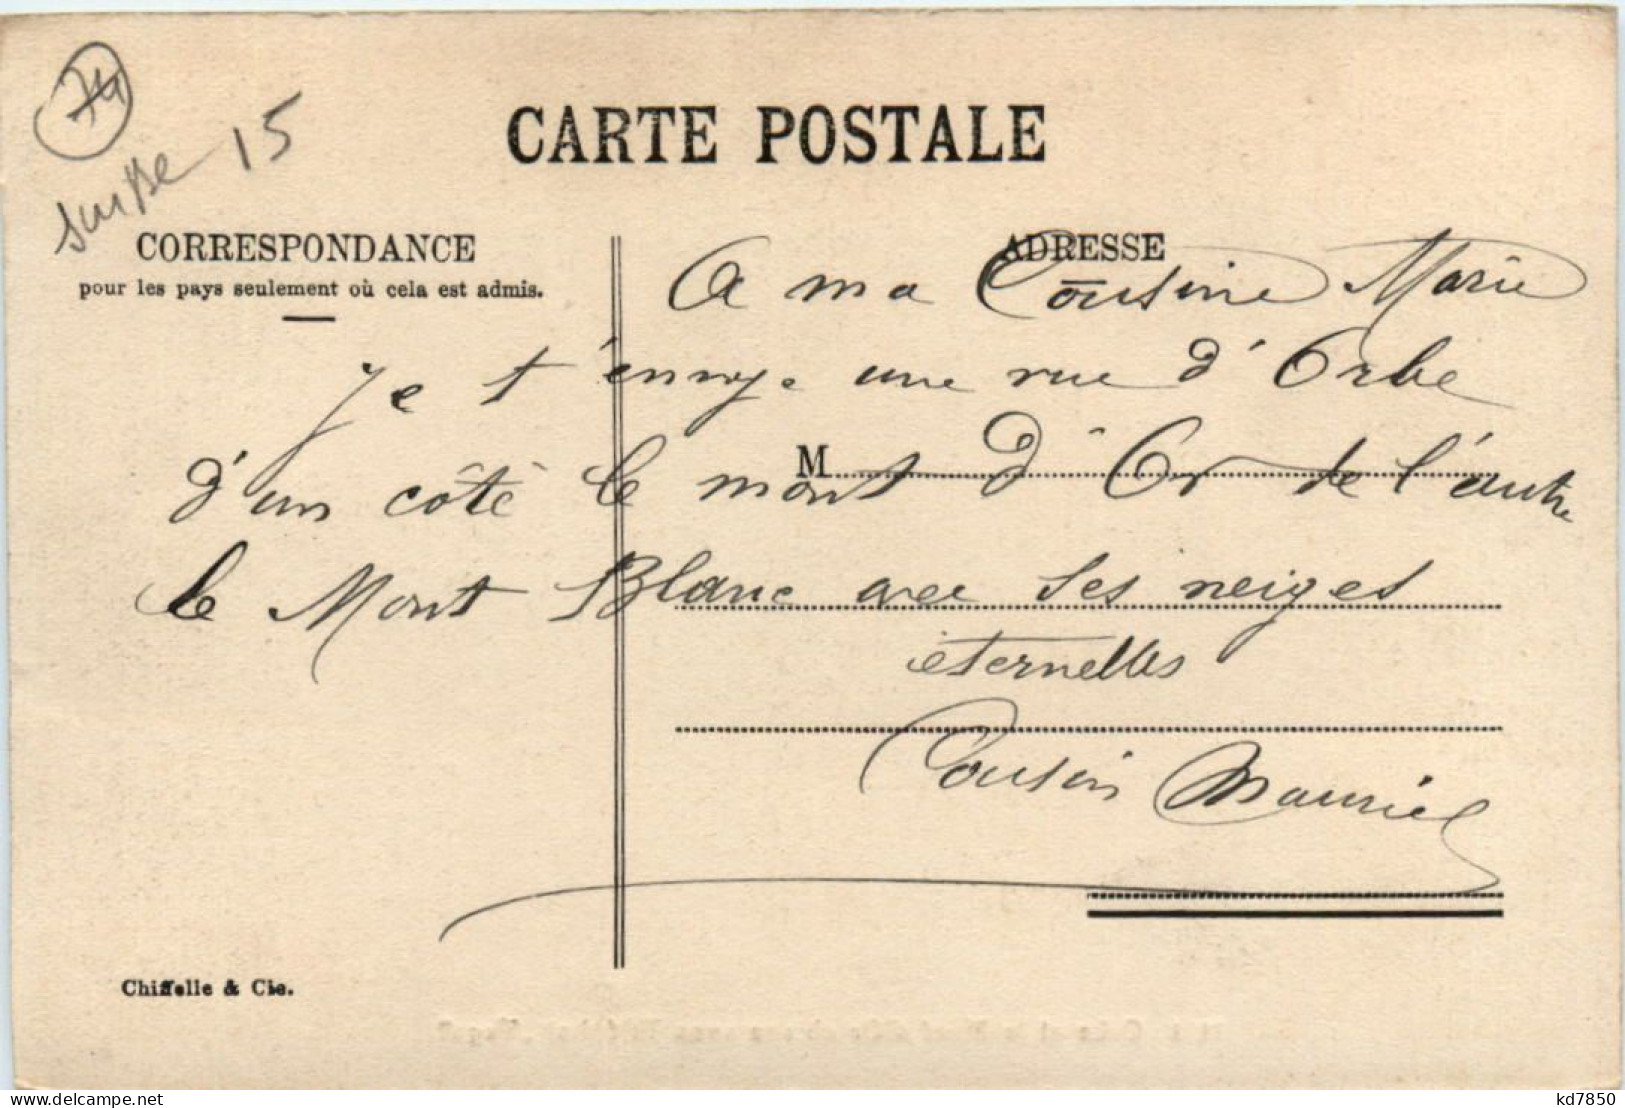 74
Suisse 15
CARTE POSTALE
CORRESPONDANCE
pour les pays seulement où cela est admis.
ADRESSE
A ma Cousine Marie
Je t'envoye une vue d'Orbe
M
d'un côté le mont d'Or de l'autre
le Mont Blanc avec ses neiges
éternelles
Cousin Maurice
Chiffelle & Cie.
delcampe.net
kd7850